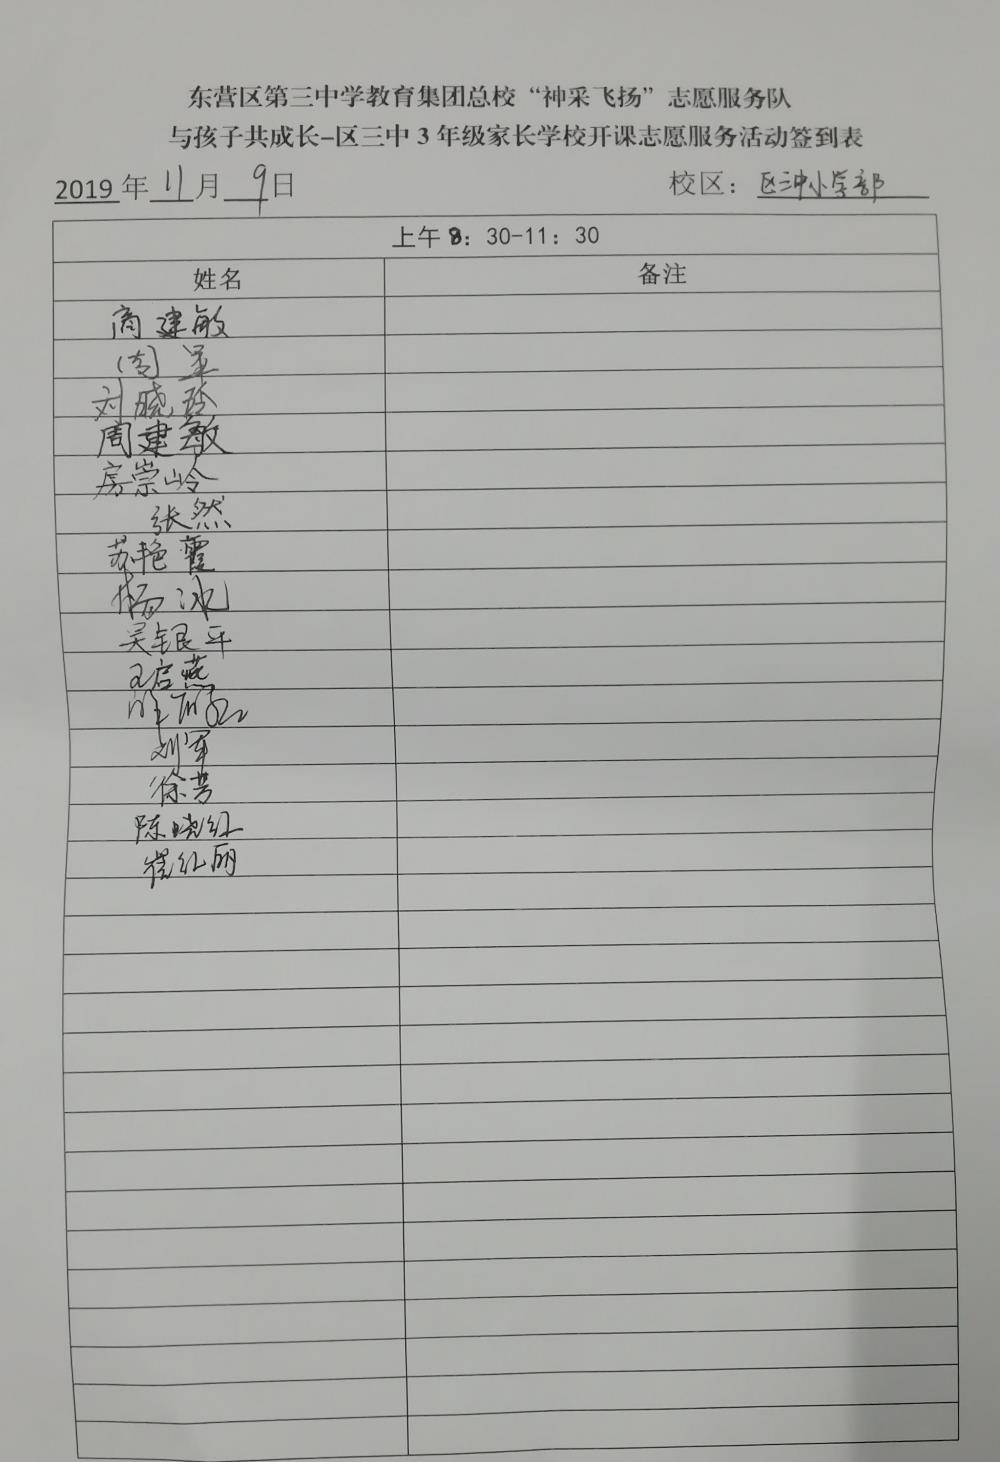 东营区第三中学教育集团总校“神采飞扬”志愿服务队
与孩子共成长-区三中3年级家长学校开课志愿服务活动签到表
2019年 11月 9日 校区：区三中小学部
上午 8：30-11：30
姓名 备注
商建敏
刘晓玲
周建敏
房崇岭
张然
苏艳霞
杨冰
吴银平
王启燕
刘军
徐芳
陈晓红
崔红丽